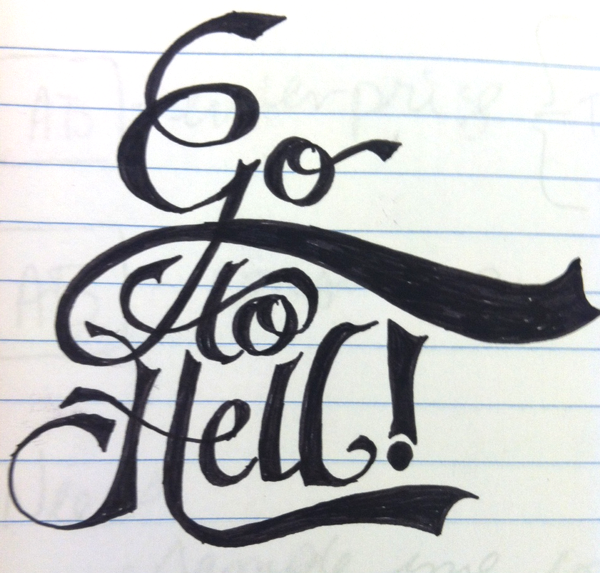 Go
to
Hell!